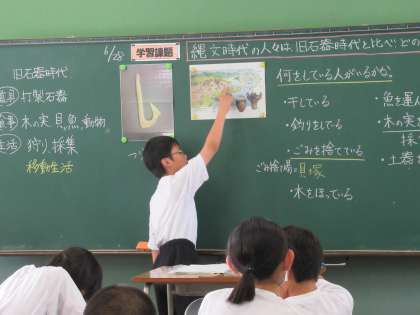 6/28
学習課題
縄文時代の人々は、旧石器時代と比べ、どの
旧石器時代
道具 打製石器
食事 木の実、貝、魚、動物
生活 狩り 採集
移動生活
何をしている人がいるかな。
・干している
・釣りをしている
・ごみを捨てている
ごみ捨て場=貝塚
・木をほっている
・魚を運
・木の実
土器
・土器